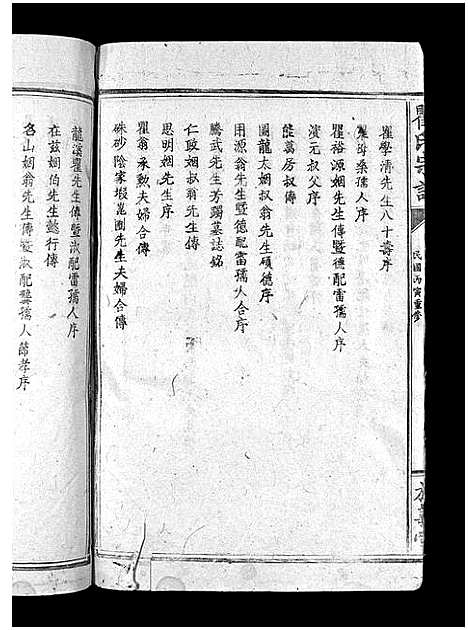 瞿氏宗譜
民國丙寅重修
瞿學清先生八十壽序
瞿母桑孺人序
瞿裕源姻先生傳暨德配雷孺人序
漢元叔父序
能萬房叔傳
國龍太姻叔翁先生碩德序
用源翁先生暨德配雷孺人合序
騰武先生芳躅墓誌銘
仁政姻叔翁先生傳
思明姻先生序
瞿翁承勲夫婦合傳
硃砂陰家塅崑圃先生夫婦合傳
龍溪瞿先生傳暨淑配雷孺人序
在茲姻伯先生懿行傳
名山姻翁先生傳暨淑配龔孺人節孝序